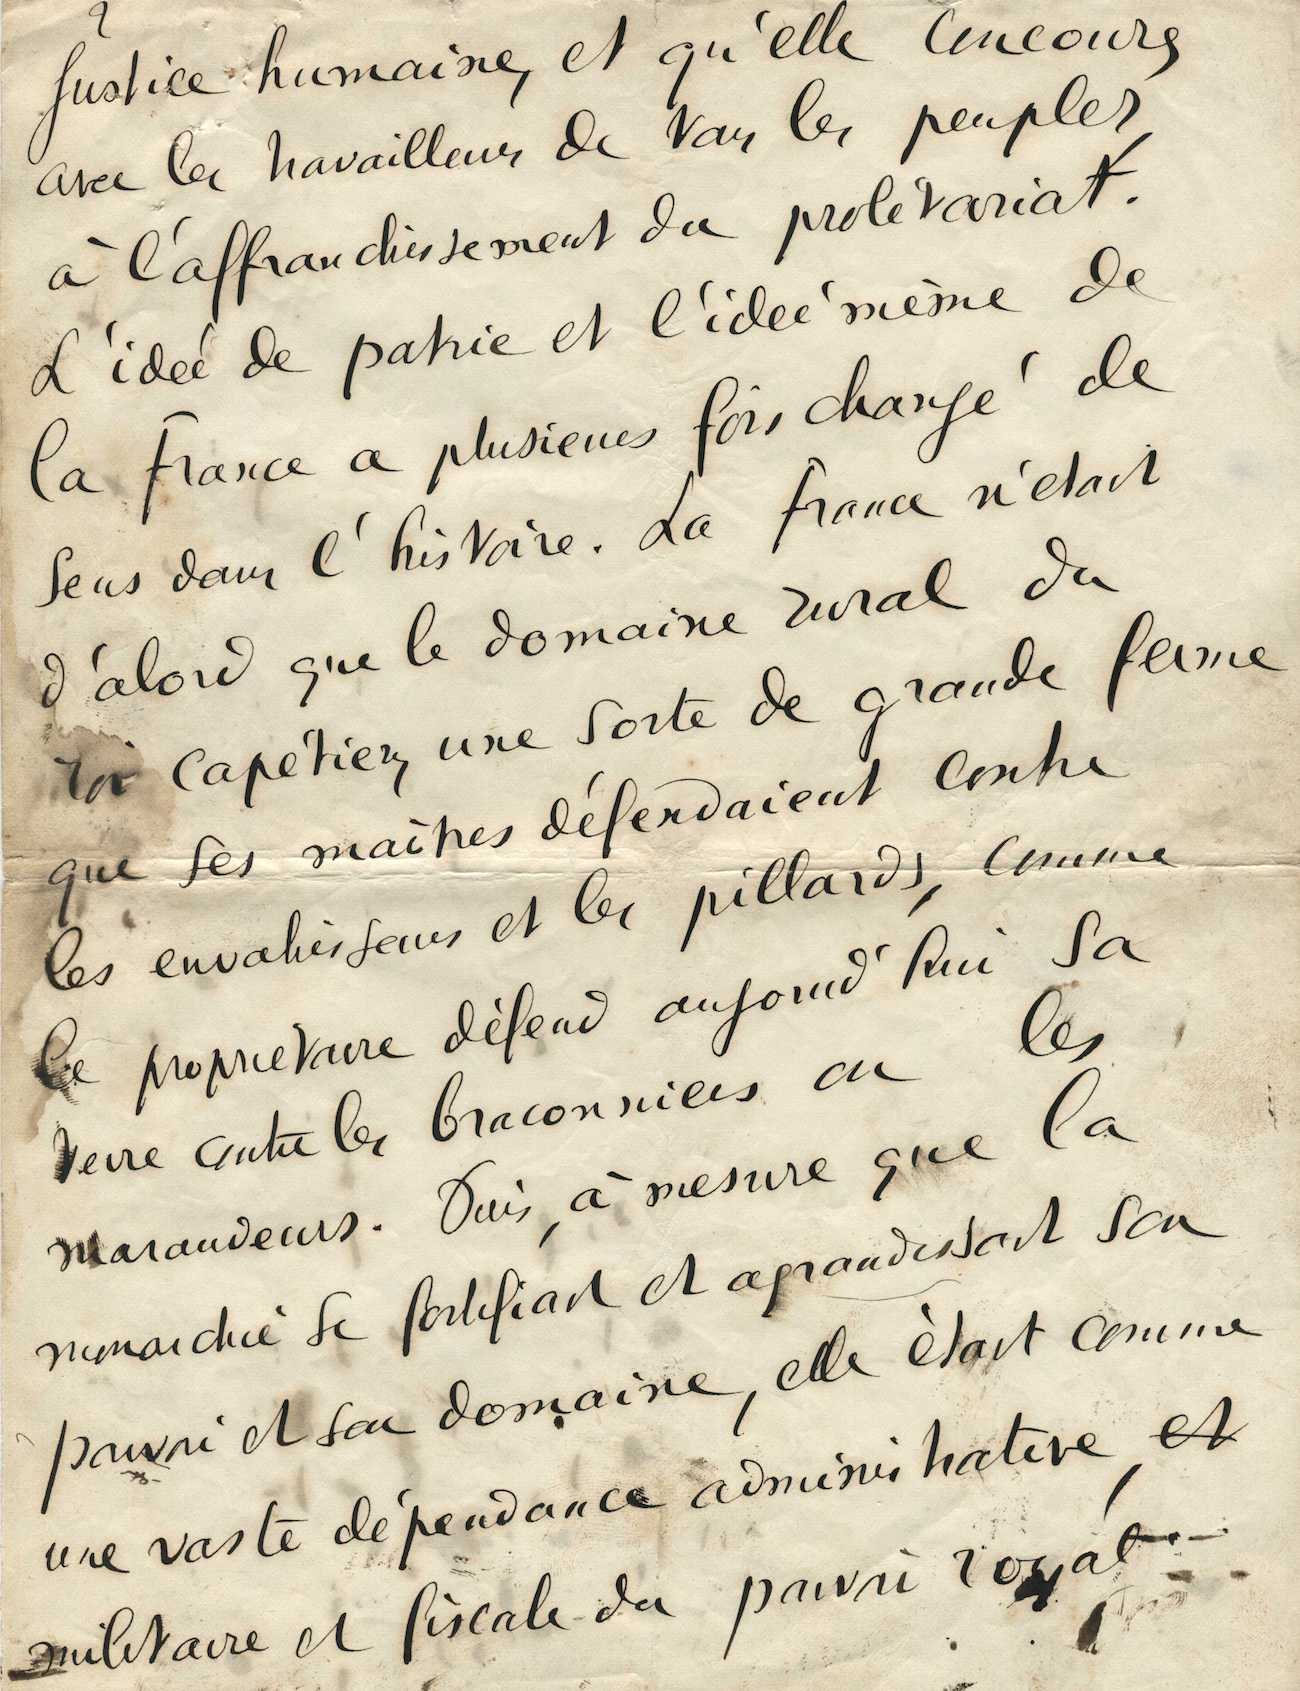 2
justice humaine, et qu'elle concoure
avec les travailleurs de tous les peuples,
à l'affranchissement du prolétariat.
L'idée de patrie et l'idée même de
la France a plusieurs fois changé de
sens dans l'histoire. La France n'était
d'abord que le domaine rural du
roi capétien, une sorte de grande ferme
que ses maîtres défendaient contre
les envahisseurs et les pillards, comme
le propriétaire défend aujourd'hui sa
terre contre les braconniers ou les
maraudeurs. Puis, à mesure que la
monarchie se fortifiait et agrandissait son
pouvoir et son domaine, elle était comme
une vaste dépendance administrative, et
militaire et fiscale du pouvoir royal